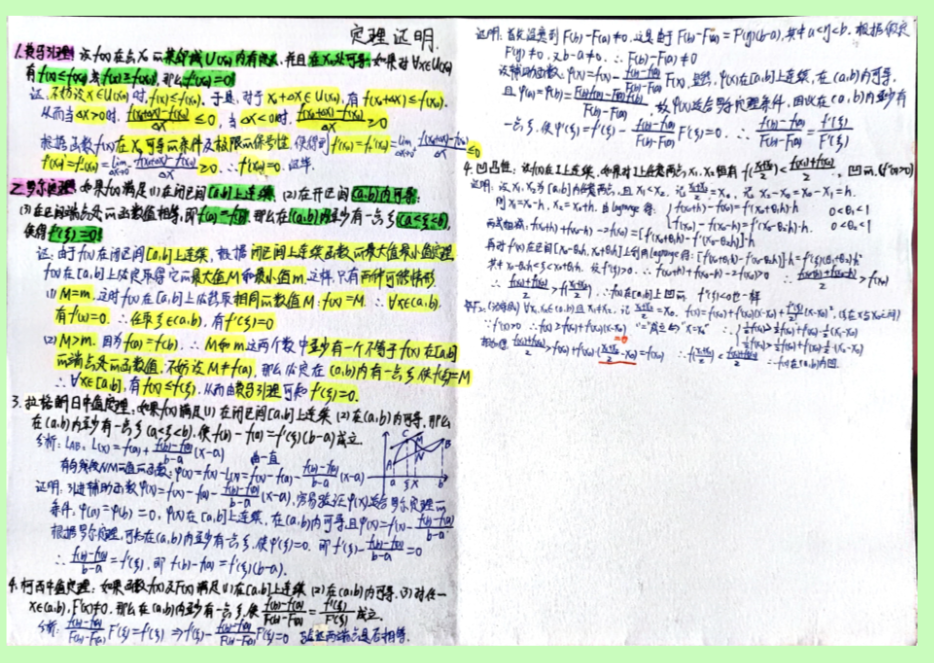 定理证明.
1.费马引理: 设f(x)在点X₀的某邻域U(x₀)内有定义,并且在X₀处可导,如果对∀x∈U(x₀)
有f(x)≤f(x₀)或f(x)≥f(x₀),那么f'(x₀)=0
证:不妨设x∈U(x₀)时,f(x)≤f(x₀).于是,对于x₀+ΔX∈U(x₀),有f(x₀+ΔX)≤f(x₀).
从而当ΔX>0时, (f(x₀+ΔX)-f(x₀))/ΔX ≤0, 当ΔX<0时, (f(x₀+ΔX)-f(x₀))/ΔX ≥0
根据函数f(x)在X₀可导的条件及极限的保号性,便得到f'(x₀)=f'₊(x₀)=lim (f(x₀+ΔX)-f(x₀))/ΔX ≤0
f'(x₀)=f'₋(x₀)=lim (f(x₀+ΔX)-f(x₀))/ΔX ≥0. ∴f'(x₀)=0. 证毕.
2.罗尔定理: 如果f(x)满足(1)在闭区间[a,b]上连续 (2)在开区间(a,b)内可导
(3)在区间端点处的函数值相等,即f(a)=f(b),那么在(a,b)内至少有一点ξ(a<ξ<b),
使得f'(ξ)=0
证:由于f(x)在闭区间[a,b]上连续,根据闭区间上连续函数的最大值最小值定理,
f(x)在[a,b]上必定取得它的最大值M和最小值m.这样,只有两种可能情形
(1) M=m.这时f(x)在[a,b]上必然取相同的数值M:f(x)=M. ∴∀x∈(a,b),
有f'(x)=0. ∴任取ξ∈(a,b),有f'(ξ)=0
(2) M>m. 因为f(a)=f(b), ∴M和m这两个数中至少有一个不等于f(x)在[a,b]
的端点处的函数值.不妨设M≠f(a),那么必定在(a,b)内有一点ξ使f(ξ)=M
∴∀x∈[a,b],有f(x)≤f(ξ),从而由费马引理可知f'(ξ)=0.
3.拉格朗日中值定理:如果f(x)满足(1)在闭区间[a,b]上连续 (2)在(a,b)内可导,那么
在(a,b)内至少有一点ξ(a<ξ<b),使f(b)-f(a)=f'(ξ)(b-a)成立.
分析: L_AB: L(x)=f(a)+ (f(b)-f(a))/(b-a) (x-a) 曲-直
有向线段NM的值的函数:φ(x)=f(x)-L(x)=f(x)-f(a)- (f(b)-f(a))/(b-a) (x-a)
A C M N B a ξ x b
证明:引进辅助函数φ(x)=f(x)-f(a)- (f(b)-f(a))/(b-a) (x-a),容易验证φ(x)适合罗尔定理的
条件, φ(a)=φ(b)=0, φ(x)在[a,b]上连续,在(a,b)内可导,且φ'(x)=f'(x)- (f(b)-f(a))/(b-a)
根据罗尔定理,可知在(a,b)内至少有一点ξ,使φ'(ξ)=0, 即f'(ξ)- (f(b)-f(a))/(b-a) =0
∴ (f(b)-f(a))/(b-a) =f'(ξ),即f(b)-f(a)=f'(ξ)(b-a).
4.柯西中值定理: 如果函数f(x)及F(x)满足(1)在[a,b]上连续 (2)在(a,b)内可导, (3)对任一
x∈(a,b), F'(x)≠0, 那么在(a,b)内至少有一点ξ,使 (f(b)-f(a))/(F(b)-F(a)) = f'(ξ)/F'(ξ) 成立.
分析: (f(b)-f(a))/(F(b)-F(a)) F'(ξ)=f'(ξ) ⇒f'(ξ)- (f(b)-f(a))/(F(b)-F(a)) F'(ξ)=0 验证两端点是否相等.
证明:首先注意到F(b)-F(a)≠0,这是由于F(b)-F(a)=F'(η)(b-a),其中a<η<b. 根据假定
F'(η)≠0, 又b-a≠0, ∴F(b)-F(a)≠0
设辅助函数: φ(x)=f(x)- (f(b)-f(a))/(F(b)-F(a)) F(x), 显然, φ(x)在[a,b]上连续,在(a,b)内可导,
且φ(a)=φ(b)= 故φ(x)适合罗尔定理条件,因此在(a,b)内至少有
一点ξ,使φ'(ξ)=f'(ξ)- (f(b)-f(a))/(F(b)-F(a)) F'(ξ)=0. ∴ (f(b)-f(a))/(F(b)-F(a)) = f'(ξ)/F'(ξ)
4.凹凸性: 设f(x)在I上连续,如果对I上任意两点x₁,x₂恒有f((x₁+x₂)/2)< (f(x₁)+f(x₂))/2, 凹的.(f''(x)>0)
证明:设x₁,x₂为[a,b]内任意两点,且x₁<x₂, 记(x₁+x₂)/2=x₀, 记x₂-x₀=x₀-x₁=h,
则x₁=x₀-h, x₂=x₀+h, 由Lagrange得: f(x₀+h)-f(x₀)=f'(x₀+θ₁h)·h 0<θ₁<1
f(x₀)-f(x₀-h)=f'(x₀-θ₂h)·h 0<θ₂<1
两式相减, f(x₀+h)+f(x₀-h)-2f(x₀)=[f'(x₀+θ₁h)-f'(x₀-θ₂h)]·h
再对f'(x)在区间[x₀-θ₂h, x₀+θ₁h]上利用Lagrange得: [f'(x₀+θ₁h)-f'(x₀-θ₂h)]·h=f''(ξ)(θ₁+θ₂)h²
其中x₀-θ₂h<ξ<x₀+θ₁h, 故f''(ξ)>0, ∴f(x₀+h)+f(x₀-h)-2f(x₀)>0 ∴ (f(x₀+h)+f(x₀-h))/2 >f(x₀)
∴ (f(x₁)+f(x₂))/2 >f((x₁+x₂)/2), ∴f(x)在[a,b]上凹的 f''(ξ)<0也一样